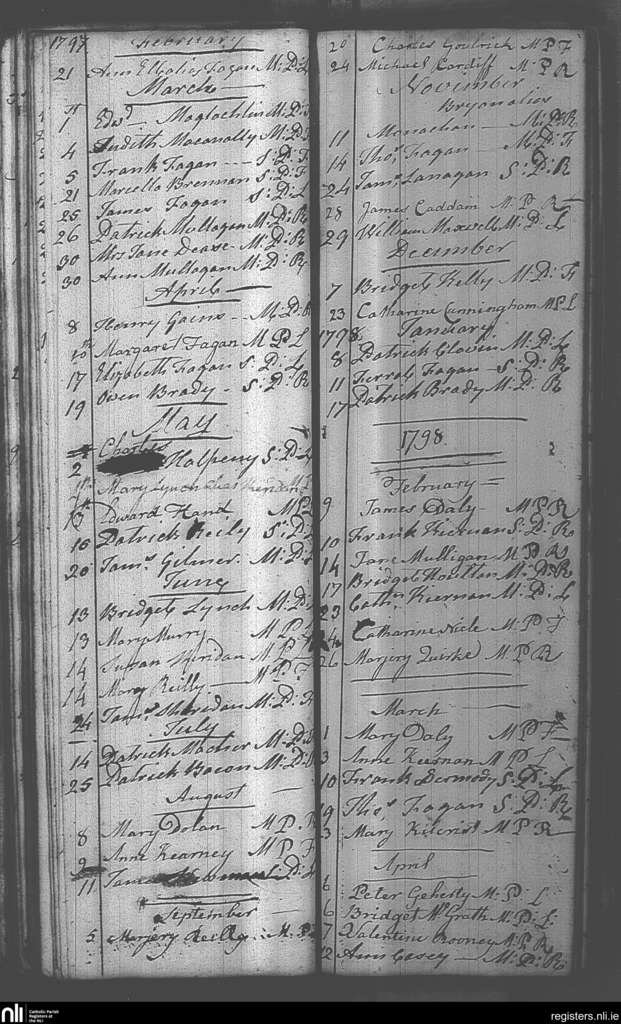 1797 February
21 Ann Fagan M: D: L
March
1st Edwd Maglochlin M: D:
4 Judith Maconally M: D:
5 Frank Fagan --- S: D: F
21 Marcella Brennan S: D: F
25 James Fagan S: D: L
26 Patrick Mullagan M: D: R
30 Mrs Jane Dease M: D: R
30 Ann Mullagan M: D: R
April
8 Henry Gains -- M: D: R
10th Margaret Fagan M P L
17 Elizabeth Fagan S: D: L
19 Owen Brady - S: D: R
May
2 Charles Halpeny S: D:
Mary Lynch
13th Edward Hand M P
16 Patrick Reily S: D:
20 Jams Gilmer M: D:
June
13 Bridget Lynch M: D:
13 Mary Murry M P
14 Susan Sheridan M P
14 Mary Reilly — M: P: F
24 Jams Sheridan M: D: F
July
14 Patrick M: D:
25 Patrick Bacon M: D:
August
8 Mary Dolan M P. R
9 Anne Kearney M P F
11 James D:
September
5 Marjery Reilly M: P:
20 Charles Goulrick M P F
24 Michael Cardiff M P R
November
Bryanalies
11 Monachan — M: D: R
14 Thos Fagan — M: D: F
24 Jams Lanagan S: D: R
28 James Caddam M P R
29 William Maxwell M: D: L
December
7 Bridget Kelly M: D: F
23 Catharine Cunningham M P L
1798 January
8 Patrick Glavin M: D: L
11 Ferral Fagan - S: D: R
17 Patrick Brady M: D: R
1798
February
9 James Daly - M P R
10 Frank Kiernan S: D: R
14 Jane Mulligan M P R
17 Bridget Houltan M: D: R
23 Cathn Kiernan M: D: L
24 Catharine M P F
26 Marjery Quirke M P R
March
1 Mary Daly M P F
3 Anne Keernan M P L
10 Frank Dermody S: D: L
19 Thos Fagan S: D: R
3 Mary Kilcrist M P R
April
6 Peter Geherty M: P: L
6 Bridget McGrath M: P: L:
7 Valentine Rooney M P R
12 Ann Casey — M: P: R
nli Catholic Parish
Registers at
the NLI
registers.nli.ie